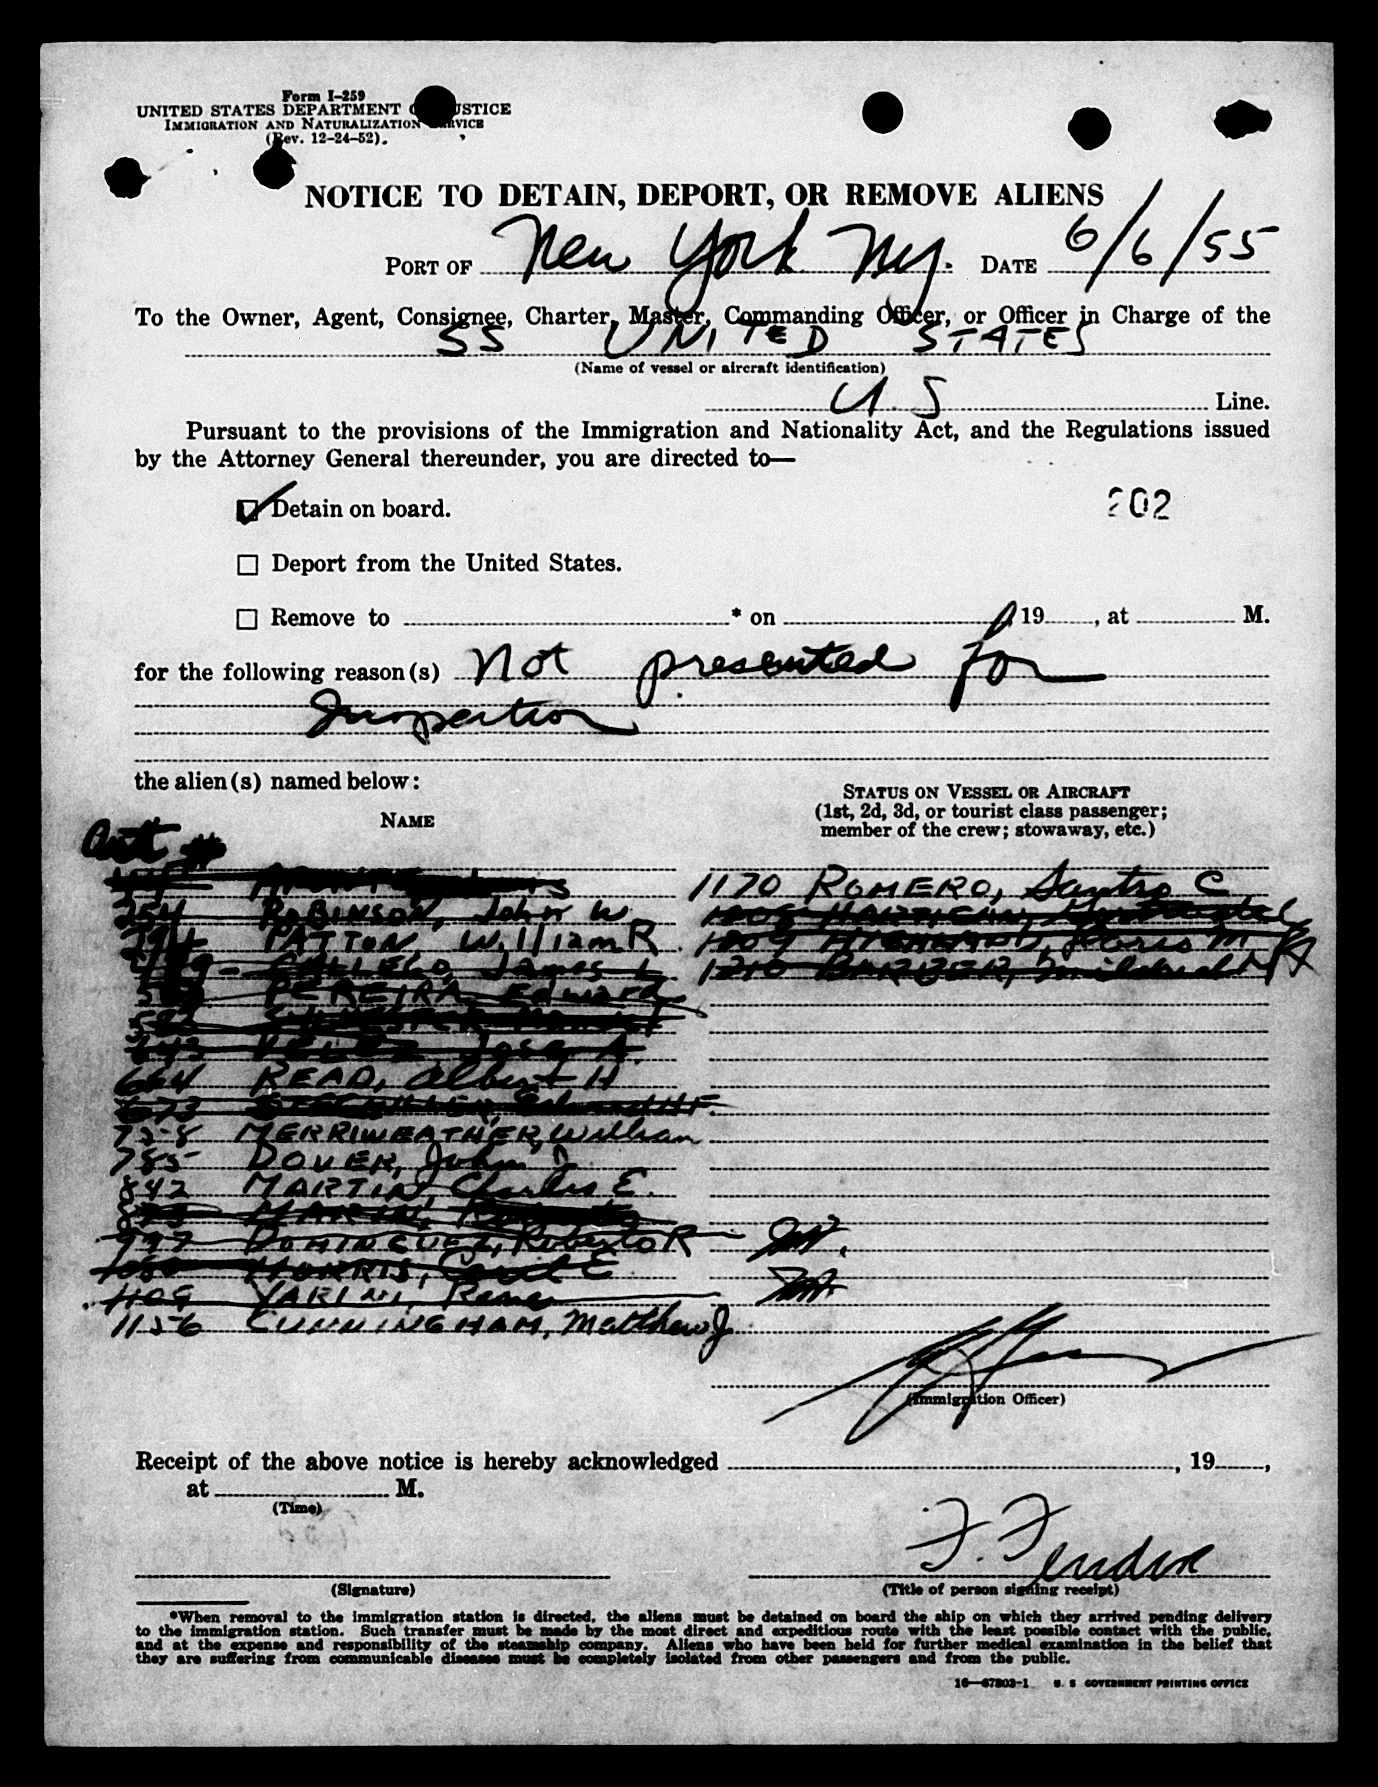 Form I-259
UNITED STATES DEPARTMENT OF JUSTICE
IMMIGRATION AND NATURALIZATION SERVICE
(Rev. 12-24-52).
NOTICE TO DETAIN, DEPORT, OR REMOVE ALIENS
PORT OF New York Ny. DATE 6/6/55
To the Owner, Agent, Consignee, Charter, Master, Commanding Officer, or Officer in Charge of the
SS UNITED STATES
(Name of vessel or aircraft identification)
U.S Line.
Pursuant to the provisions of the Immigration and Nationality Act, and the Regulations issued
by the Attorney General thereunder, you are directed to—
Detain on board.
202
Deport from the United States.
Remove to * on 19 , at M.
for the following reason(s) Not presented for
Inspection
the alien(s) named below:
NAME
STATUS ON VESSEL OR AIRCRAFT
(1st, 2d, 3d, or tourist class passenger;
member of the crew; stowaway, etc.)
Art #
1170 ROMERO, Santos C
254 ROBINSON, John W
PATTON William R
1209 Doris M
GALLEGO, James L
1210 BARBER, Mildred M
PEREIRA, Edward
Jose A.
664 READ, Albert H
673
728 MERRIWEATHER, William
785 DOVER, John J
842 MARTIN, Charles E.
MARIN,
997 DOMINGUEZ, Roberto R
MORRIS, Cecil E
1109 VARINI, Rene
1156 CUNNINGHAM, Matthew J
(Immigration Officer)
Receipt of the above notice is hereby acknowledged , 19 ,
at M.
(Time)
F. Fendin
(Signature)
(Title of person signing receipt)
*When removal to the immigration station is directed, the aliens must be detained on board the ship on which they arrived pending delivery
to the immigration station. Such transfer must be made by the most direct and expeditious route with the least possible contact with the public,
and at the expense and responsibility of the steamship company. Aliens who have been held for further medical examination in the belief that
they are suffering from communicable diseases must be completely isolated from other passengers and from the public.
16—67303-1 U. S. GOVERNMENT PRINTING OFFICE